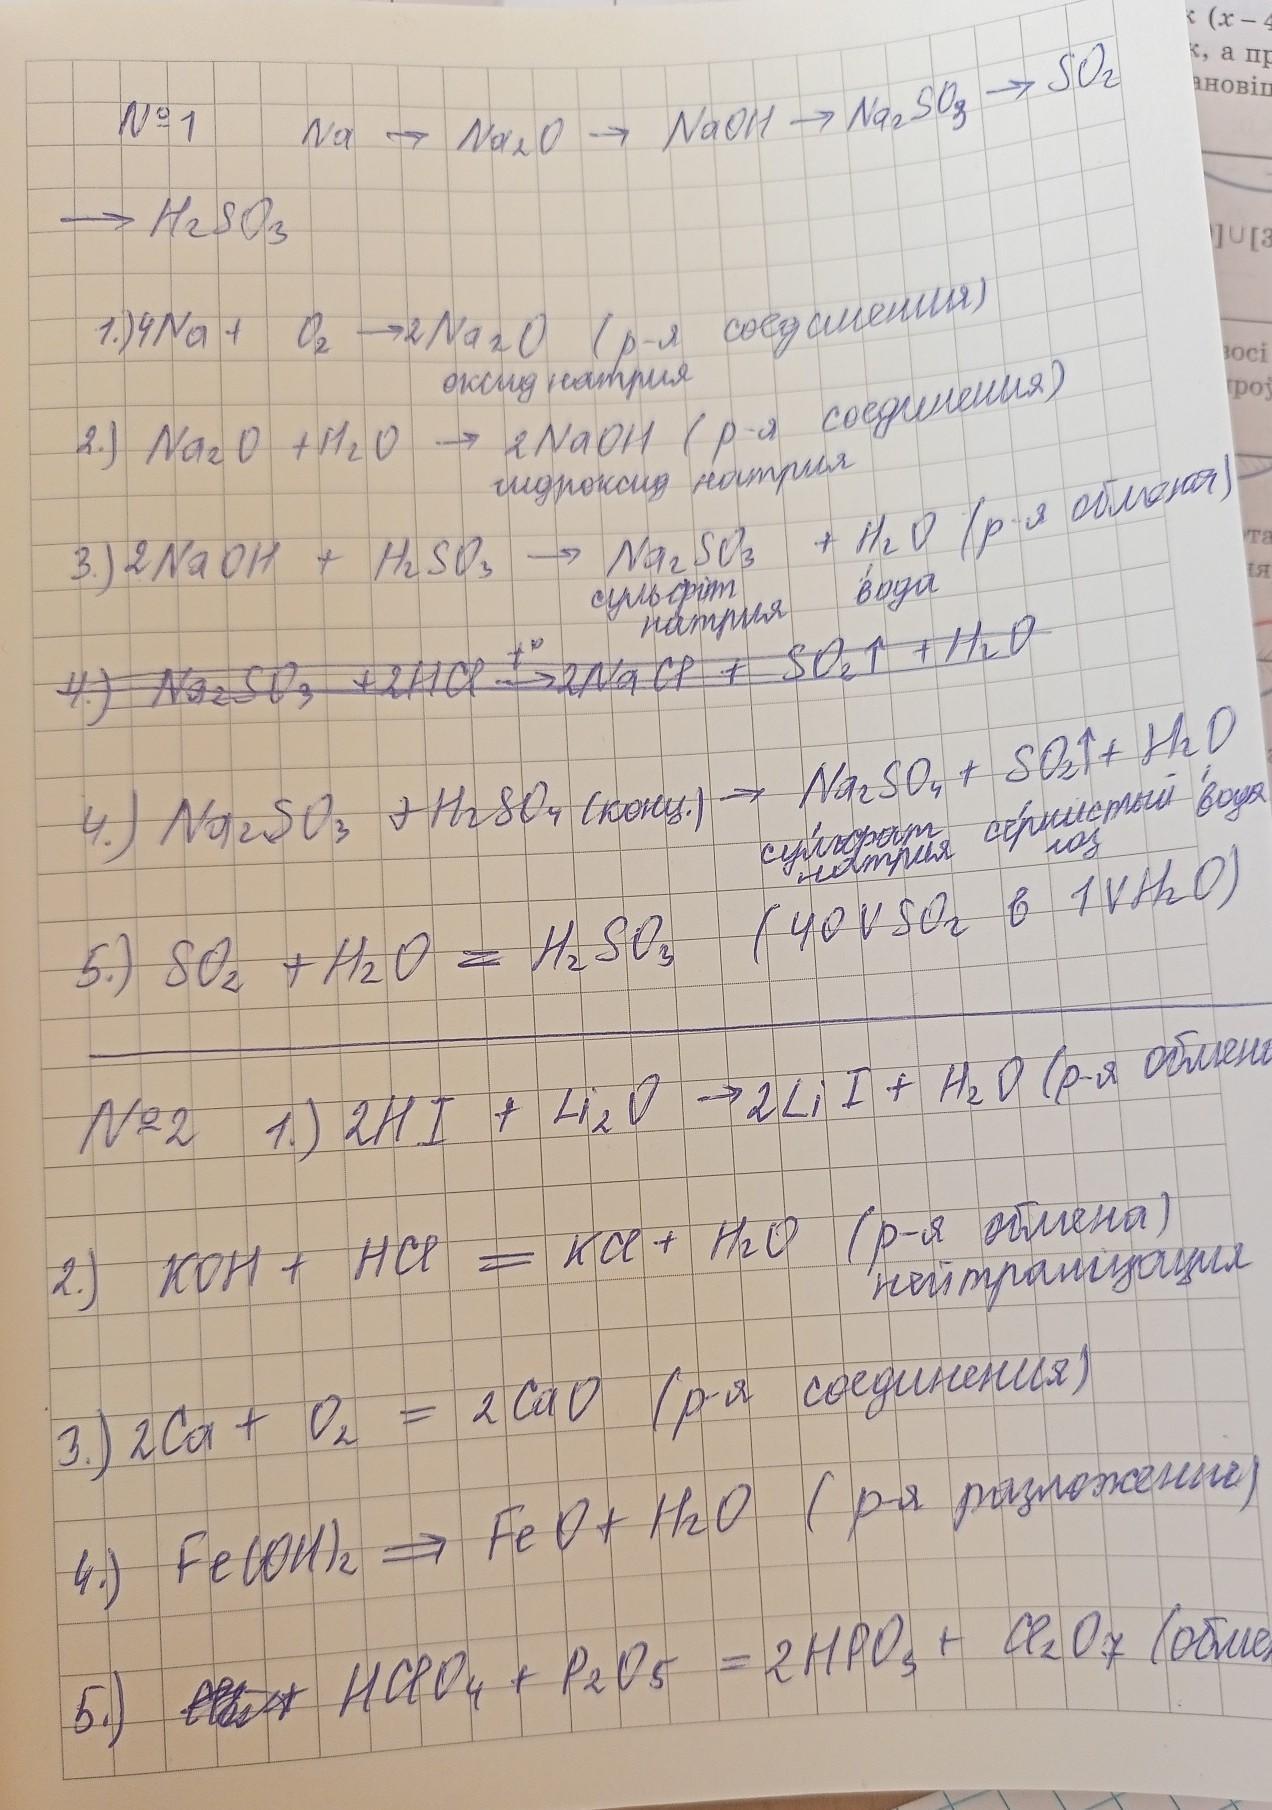 №1 Na → Na₂O → NaOH → Na₂SO₃ → SO₂
→ H₂SO₃
1.) 4Na + O₂ → 2Na₂O (р-я соединения)
оксид натрия
2.) Na₂O + H₂O → 2NaOH (р-я соединения)
гидроксид натрия
3.) 2NaOH + H₂SO₃ → Na₂SO₃ + H₂O (р-я обмена)
сульфит вода
натрия
4.) Na₂SO₃ + 2HCl →t° 2NaCl + SO₂↑ + H₂O
4.) Na₂SO₃ + H₂SO₄ (конц.) → Na₂SO₄ + SO₂↑ + H₂O
сульфат сернистый вода
натрия газ
5.) SO₂ + H₂O = H₂SO₃ (40V SO₂ в 1V H₂O)
№2 1.) 2HI + Li₂O → 2LiI + H₂O (р-я обмена
2.) KOH + HCl = KCl + H₂O (р-я обмена)
нейтрализация
3.) 2Ca + O₂ = 2CaO (р-я соединения)
4.) Fe(OH)₂ ⇒ FeO + H₂O (р-я разложение)
5.) HClO₄ + P₂O₅ = 2HPO₃ + Cl₂O₇ (обмен
к (x – 4
]∪[3